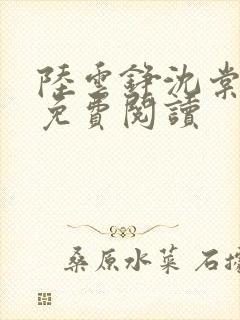 陸雲錚沈棠
免費閱讀
桑原水菜 石擋